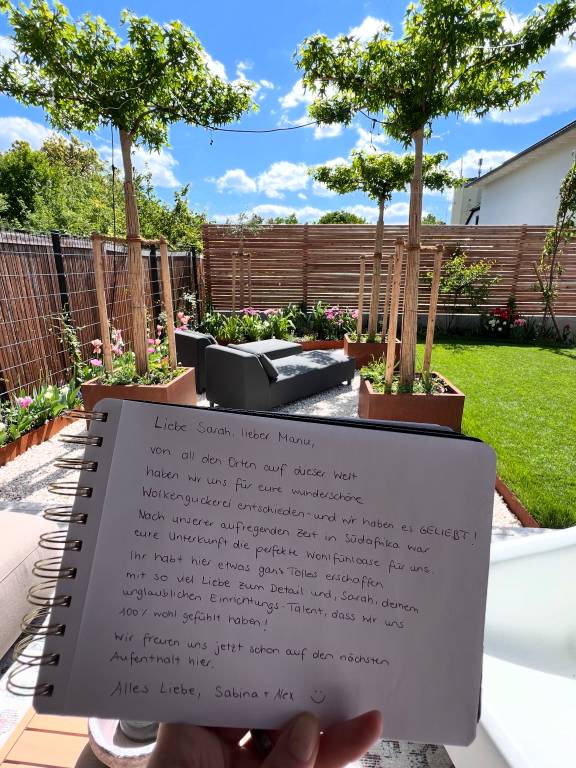 Liebe Sarah, lieber Manu,
von all den Orten auf dieser Welt
haben wir uns für eure wunderschöne
Wolkenguckerei entschieden - und wir haben es GELIEBT!
Nach unserer aufregenden Zeit in Südafrika war
eure Unterkunft die perfekte Wohlfühloase für uns.
Ihr habt hier etwas ganz Tolles erschaffen
mit so viel Liebe zum Detail und, Sarah, deinem
unglaublichen Einrichtungs-Talent, dass wir uns
100% wohl gefühlt haben!
Wir freuen uns jetzt schon auf den nächsten
Aufenthalt hier.
Alles Liebe, Sabina + Alex ☺